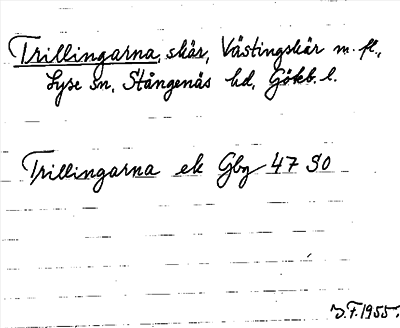 Trillingarna, skär, Västingskär m. fl.,
Lyse sn, Stångenäs hd, Gökb. l.
Trillingarna ek Gbg 47 SO
J.F. 1955.